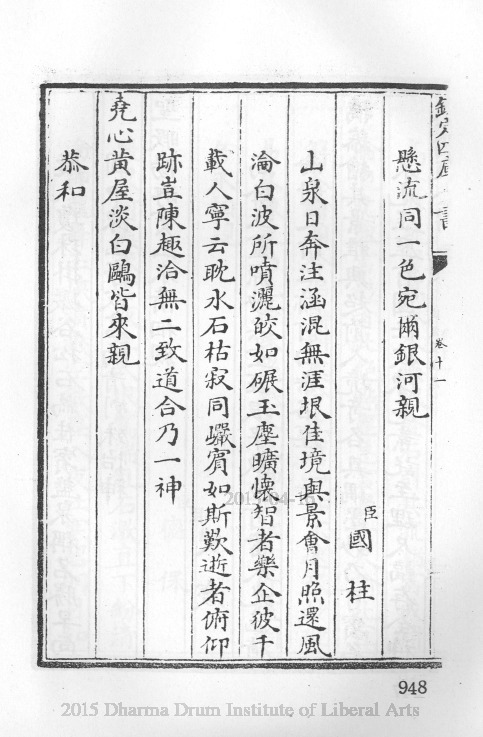 欽定四庫全書
卷十一
懸流同一色宛爾銀河親
臣國柱
山泉日奔注涵混無涯垠佳境與景會月照還風
淪白波所噴灑皎如碾玉塵曠懷智者樂企彼千
載人寧云耽水石枯寂同巘賓如斯歎逝者俯仰
跡豈陳趣洽無二致道合乃一神
堯心黄屋淡白鷗皆來親
恭和
948
2015 Dharma Drum Institute of Liberal Arts